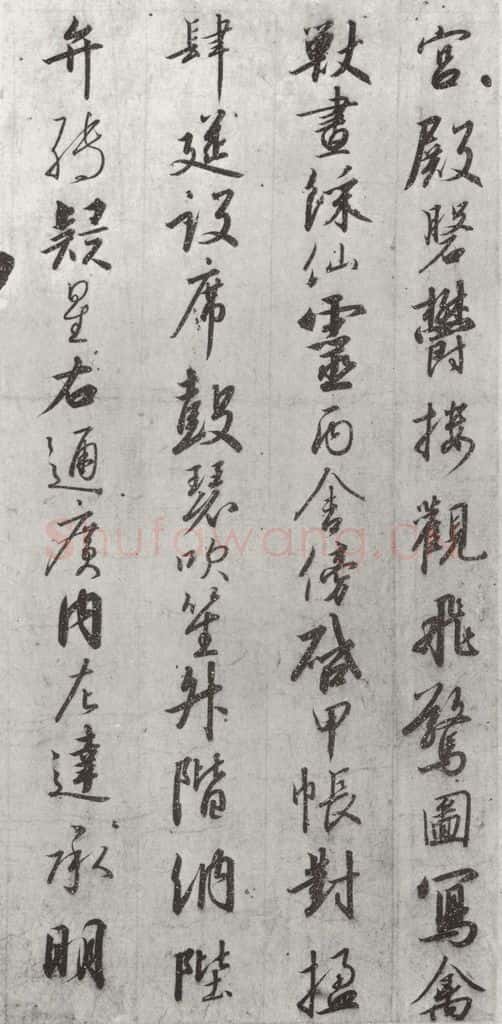 宮殿磐欝樓觀飛驚圖寫禽
獸畫綵仙靈丙舍傍啓甲帳對楹
肆筵設席鼓瑟吹笙升階納陛
弁轉疑星右通廣內左達承明
Shufawang.cn